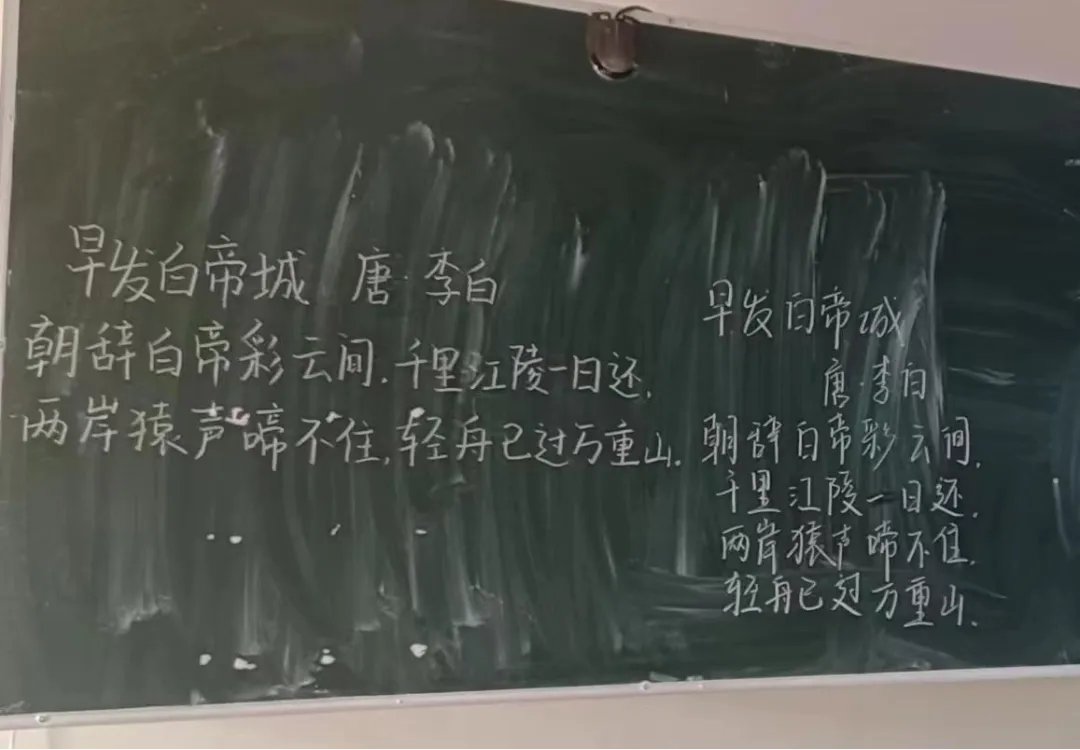 早发白帝城 唐·李白
朝辞白帝彩云间,千里江陵一日还,
两岸猿声啼不住,轻舟已过万重山.
早发白帝城
唐·李白
朝辞白帝彩云间,
千里江陵一日还,
两岸猿声啼不住,
轻舟已过万重山.